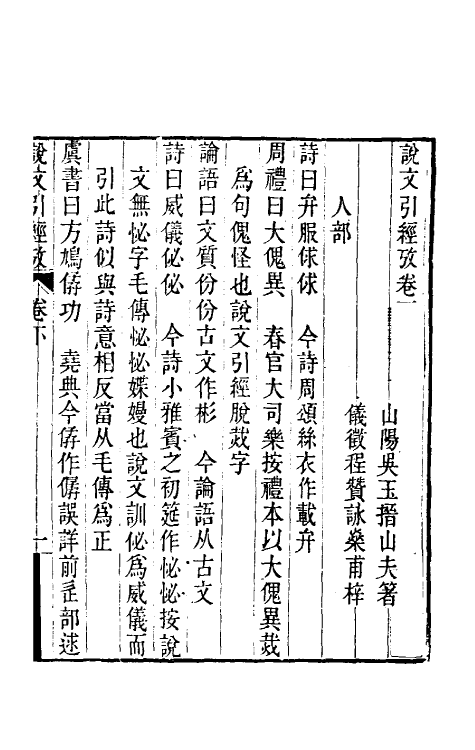 說文引經攷卷一
山陽吳玉搢山夫著
儀徵程贊詠燊甫梓
人部
詩曰弁服俅俅　今詩周頌絲衣作載弁
周禮曰大傀異　春官大司樂按禮本以大傀異烖
爲句傀怪也說文引經脫烖字
論語曰文質份份古文作彬　今論語从古文
詩曰威儀佖佖　今詩小雅賓之初筵作怭怭按說
文無怭字毛傳怭怭媟嫚也說文訓佖爲威儀而
引此詩似與詩意相反當从毛傳爲正
虞書曰方鳩僝功　堯典今僝作僝誤詳前辵部逑
說文引經攷　卷下　十一